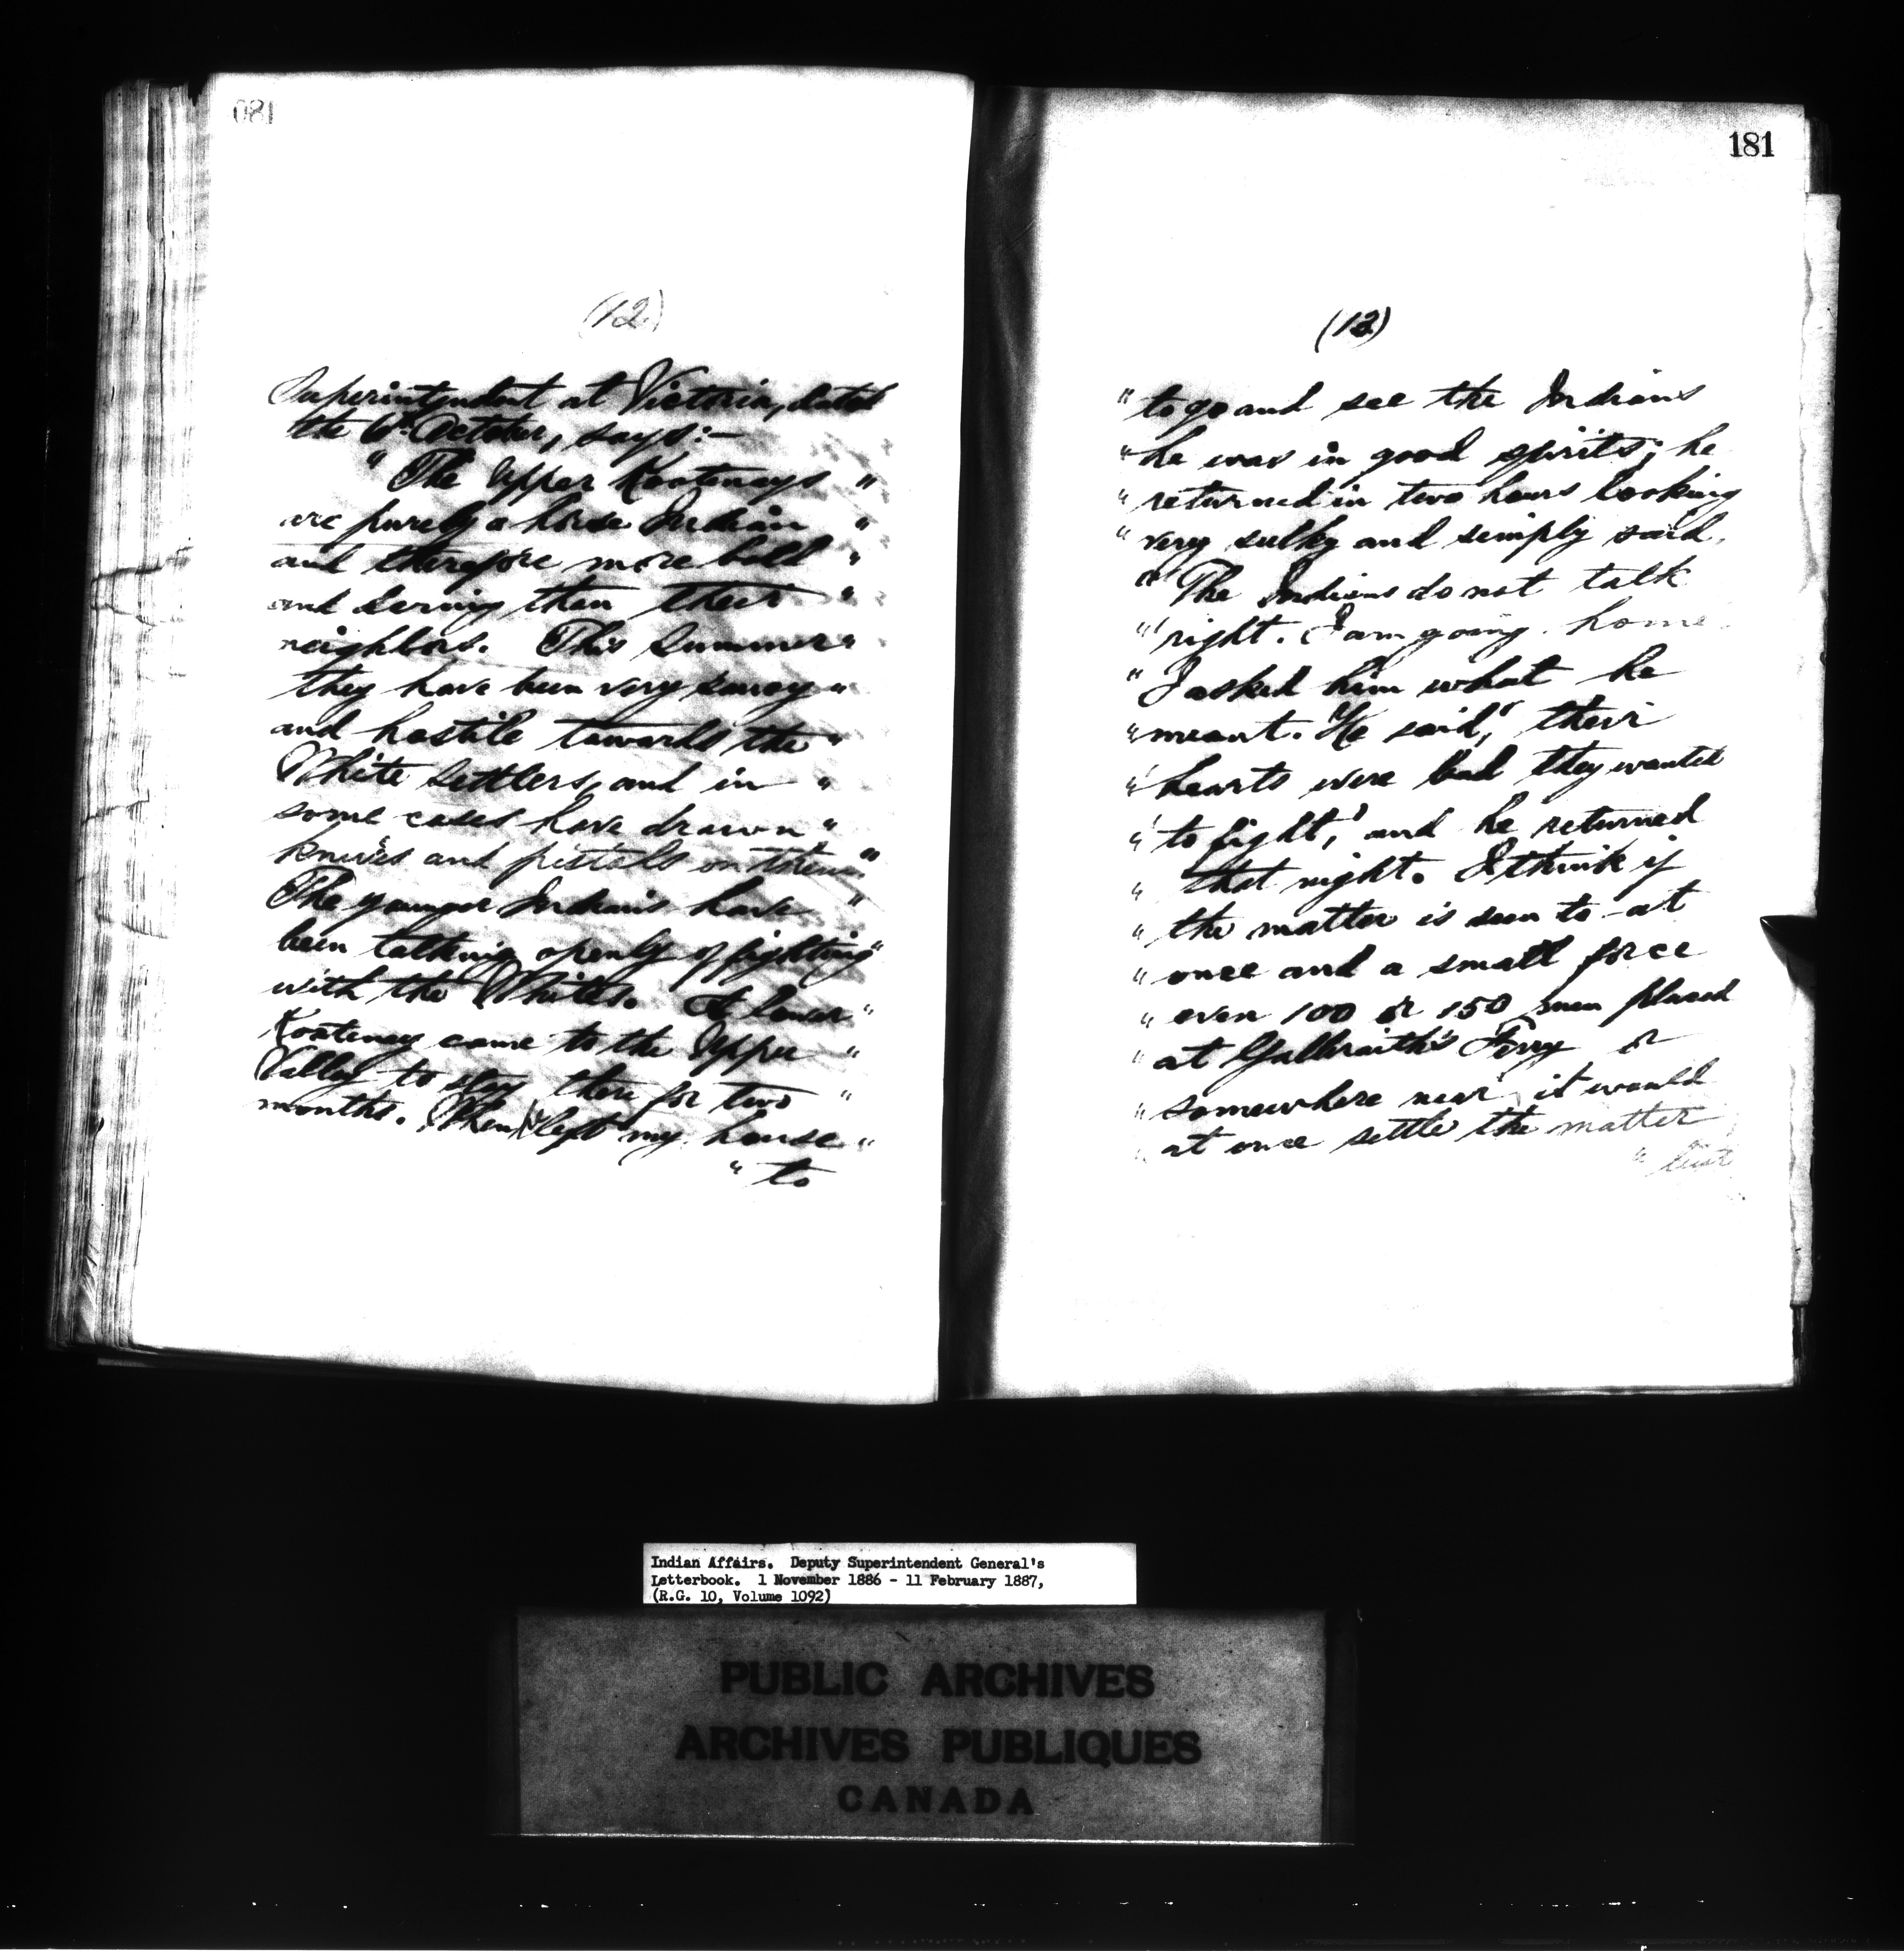 180
(12)
Superintendent at Victoria, dated
the 6th October, says:—
" The Upper Kootenays "
are purely a horse Indian "
and therefore more bold "
and daring then their "
neighbors. This Summer "
they have been very saucy "
and hostile towards the "
White Settlers, and in "
some cases have drawn "
knives and pistols on them. "
The younger Indians have "
been talking openly of fighting "
with the Whites. A Lower "
Kootenay came to the Upper "
Valley to stay there for two "
months. When he left my house "
" to
181
(12)
" to go and see the Indians
" he was in good spirits; he
" returned in two hours looking
" very sulky and simply said,
" 'The Indians do not talk
" ' right. I am going home
" I asked him what he
" meant. He said, ' their
" ' hearts were bad they wanted
" ' to fight,' and he returned
" that night. I think if
" the matter is seen to at
" once and a small force
" even 100 or 150 men placed
" at Galbraith's Ferry or
" somewhere near, it would
" at once settle the matter
" but
Indian Affairs. Deputy Superintendent General's
Letterbook. 1 November 1886 - 11 February 1887,
(R.G. 10, Volume 1092)
PUBLIC ARCHIVES
ARCHIVES PUBLIQUES
CANADA